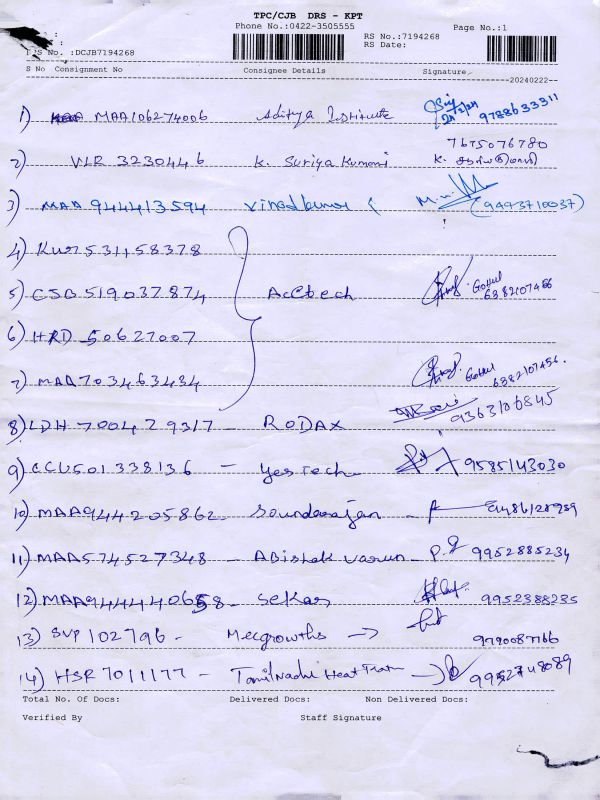 TPC/CJB DRS - KPT
Phone No.:0422-3505555 Page No.:1
RS No.:7194268
RS Date:
S No. :DCJB7194268
S No Consignment No Consignee Details Signature
20240222--
1) MAA106274006 Aditya Institute 9788633311
2) VLR 3230446 K. Suriya Kumari 7675076780
3) MAA 944413594 Vinodkumar (9493710037)
4) KWT531158378
5) CSB519037874 Acctech Gokul 6382107456
6) HRD 50627007
7) MAA703463434 Gokul 6382107456.
8) LDH 700429317 - RODAX 9363106845
9) CCU501338136 - Yes Tech 9585143030
10) MAA944205862 - Soundarajan -
11) MAA574527348 - Abishek varun - 9952885234
12) MAA944440658 - Sekar 9952388235
13) SVP 102796 - Mecgrowths -> 9790087766
14) HSR 7011177 - Tamil Nadu Heat -> 9952748089
Total No. Of Docs: Delivered Docs: Non Delivered Docs:
Verified By Staff Signature